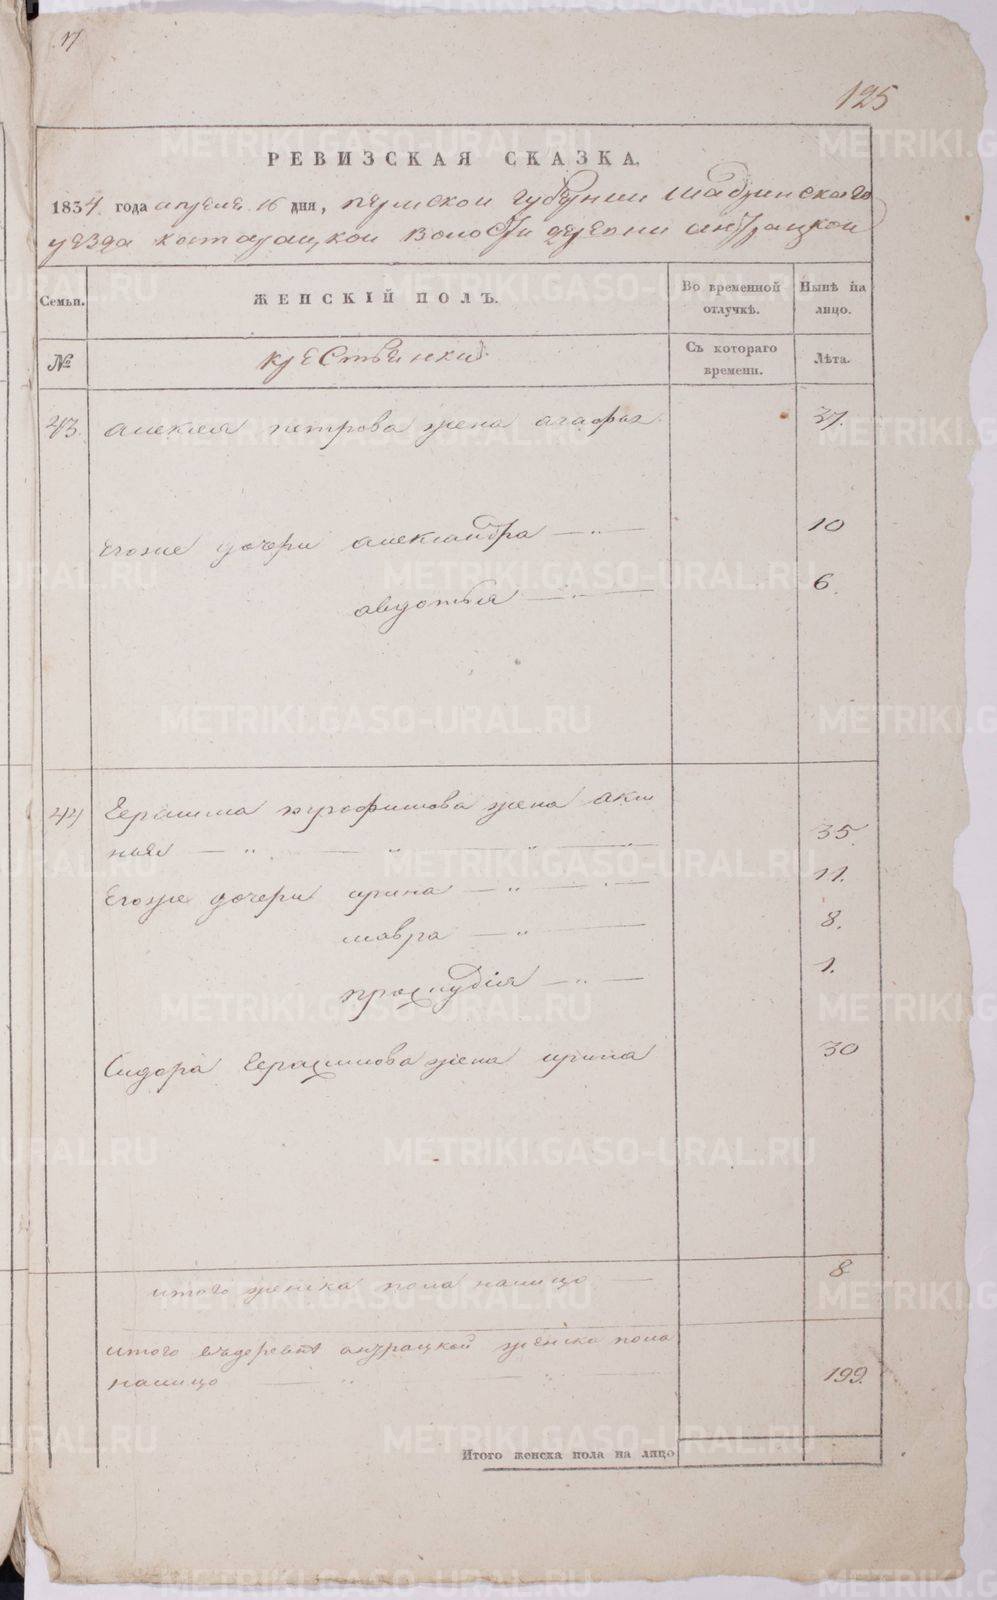 17
125
РЕВИЗСКАЯ СКАЗКА.
1834 года апреля 16 дня, пермской губернии шадринскаго
уезда катарацкой волости деревни анчрацкой
Семьи. ЖЕНСКІЙ ПОЛЪ. Во временной отлучкѣ. Нынѣ на лицо.
№ крестьянки Съ котораго времени. Лѣта.
43. алексея петрова жена агафья 37.
Егоже дочери александра — „ — 10
авдотья — „ — 6.
44 Герасима трофимова жена акси
нья — „ — „ — „ — 35.
Егоже дочери ирина — „ — 11.
мавра — „ — 8.
1.
Сидора Герасимова жена ирина 30
итого женска пола налицо — 8
итого въдеревне анчрацкой женска пола
налицо — „ — „ — 199.
Итого женска пола на лицо
METRIKI.GASO-URAL.RU